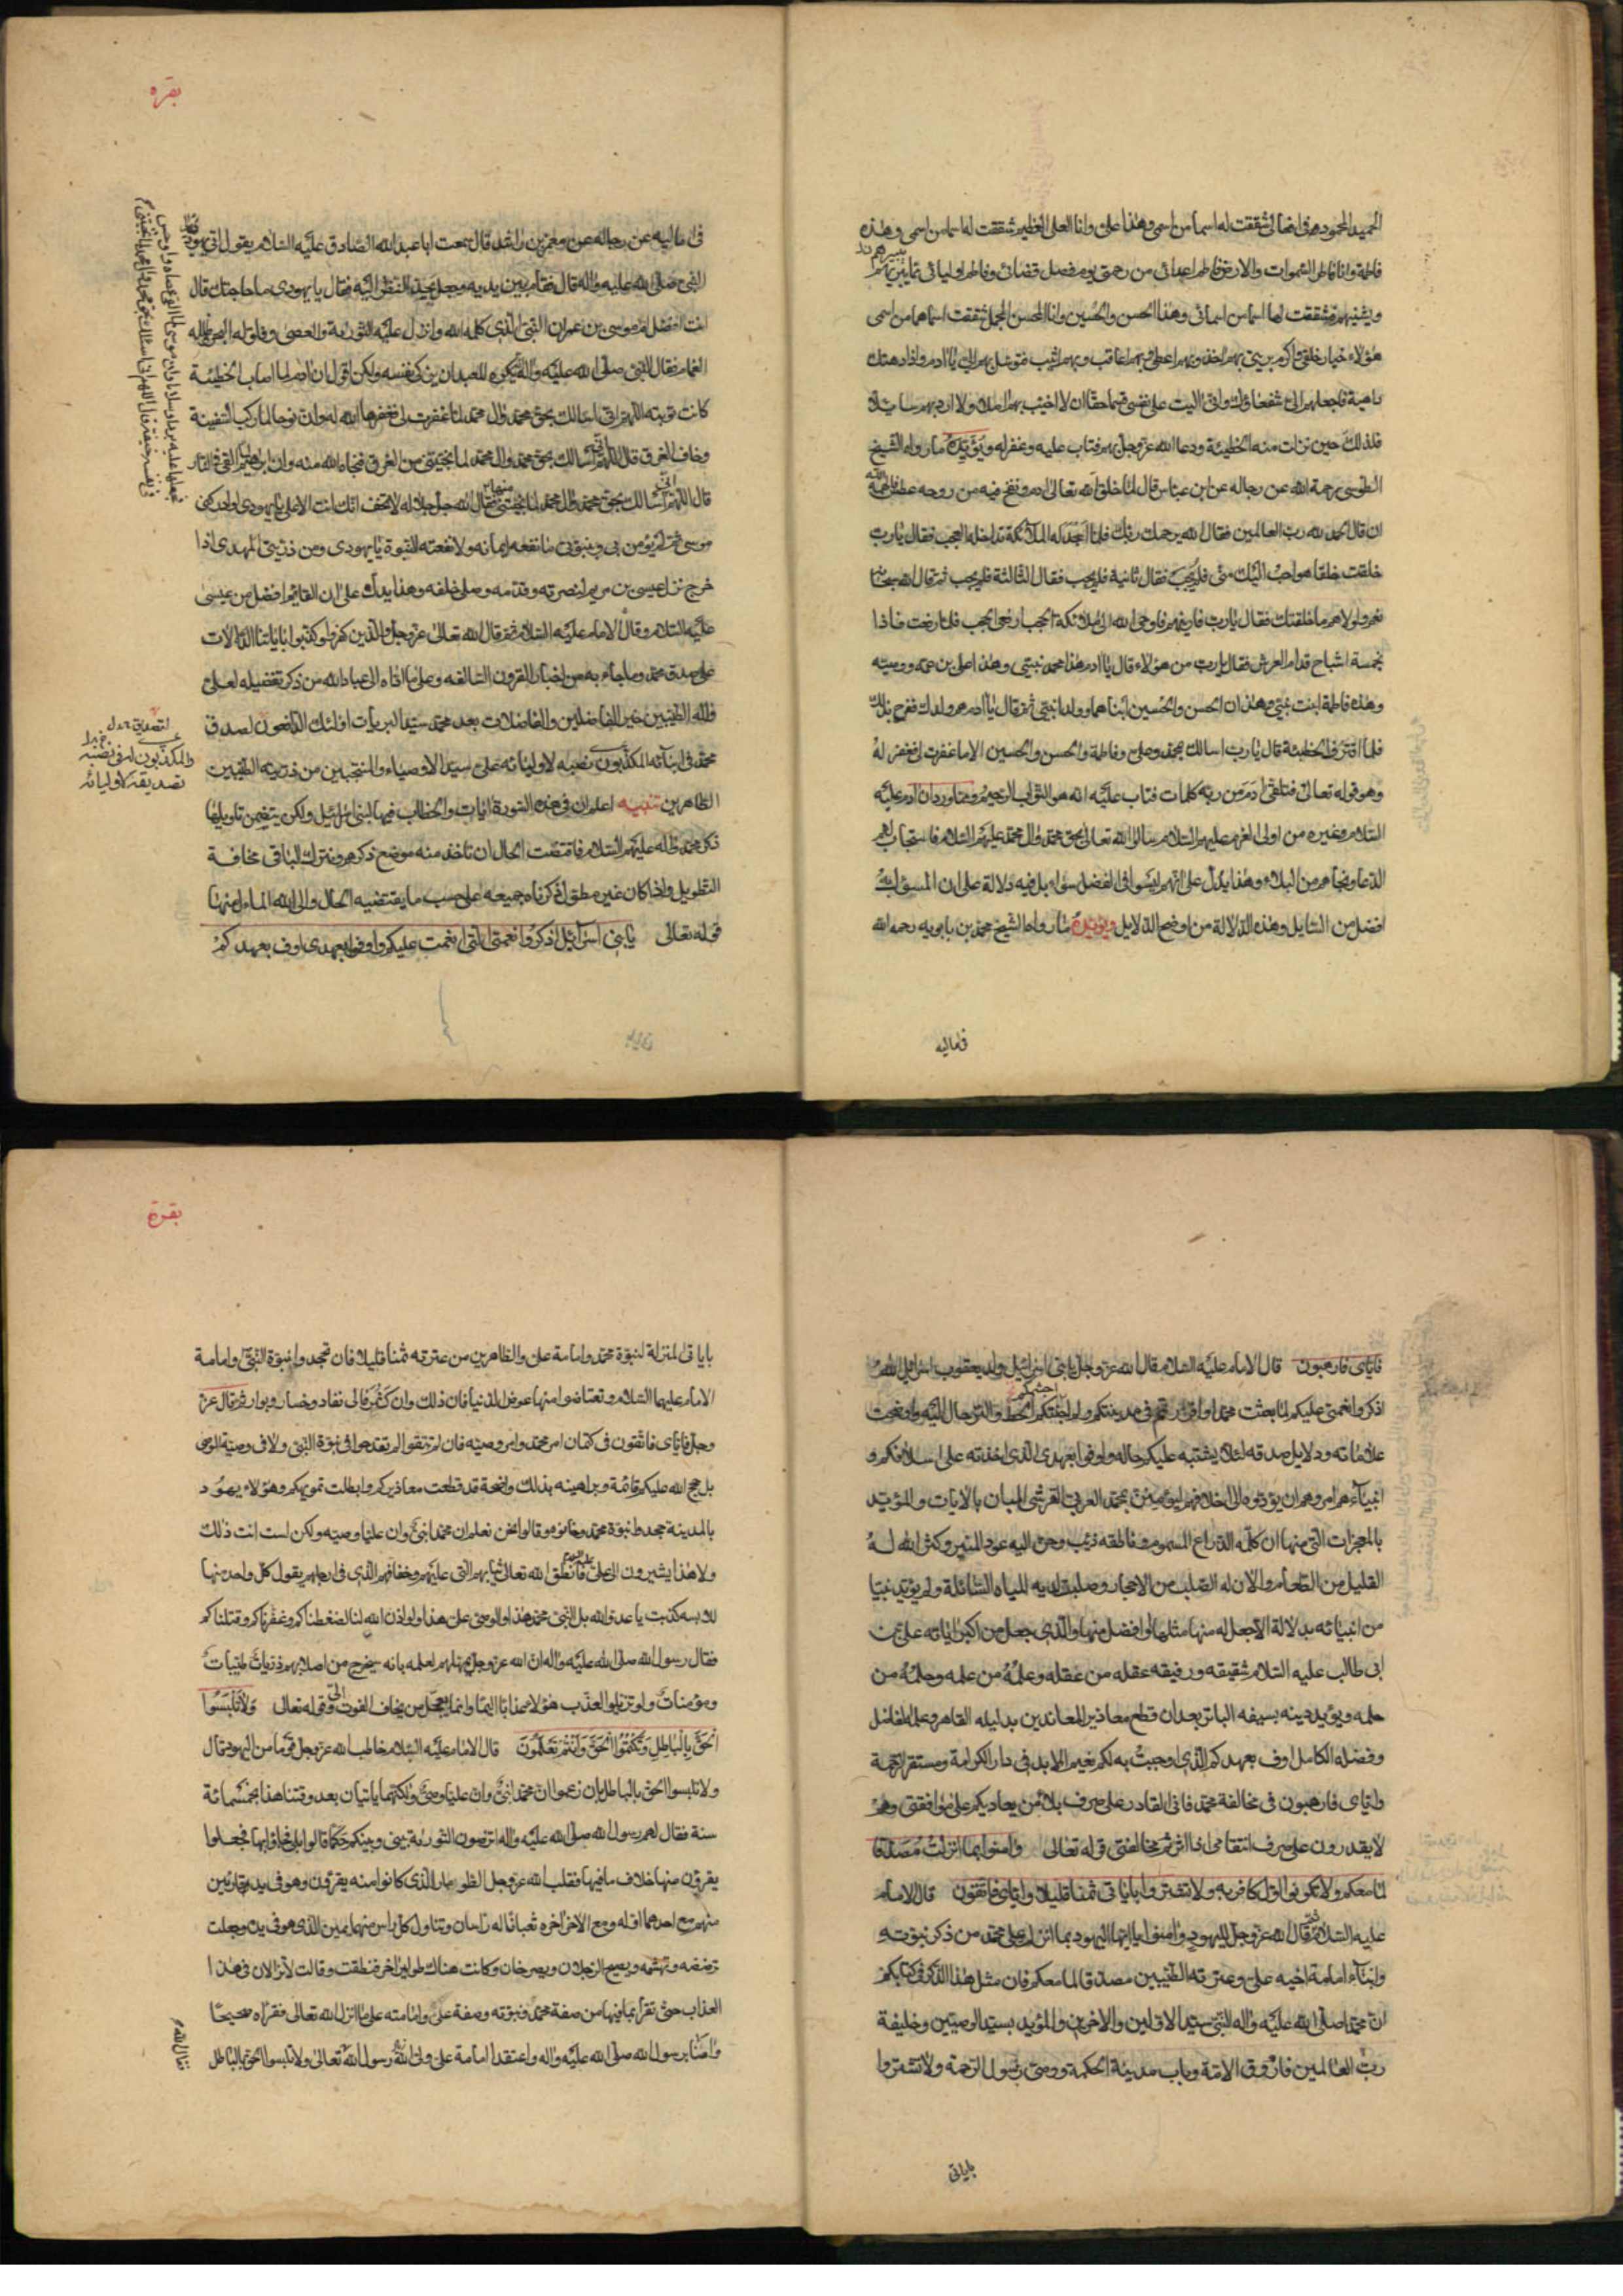 الحميد المحمود في افعالي شققت له اسما من اسمي وهذا علي وانا العلي العظيم شققت له اسما من اسمي وهذه
فاطمة وانا فاطر السموات والارض فاطم اعدائي من رحمتي يوم فصل قضائي وفاطم اوليائي عما يبيرهم
ويشينهم فشققت لها اسما من اسمائي وهذا الحسن والحسين وانا المحسن المجمل شققت اسماهما من اسمي
هؤلاء خيار خلقي واكرم بريتي بهم اخذ وبهم اعطي وبهم اعاقب وبهم اثيب فتوسل بهم الي يا ادم واذا دهتك
داهية فاجعلهم الي شفعاؤك واني اليت على نفسي قسما حقا ان لا اخيب بهم املا ولا ارد بهم سايلا
فلذلك حين نزلت منه الخطيئة ودعا الله عز وجل بهم فتاب عليه وغفر له ويؤيده ما رواه الشيخ
الطوسي رحمة الله عن رجاله عن ابن عباس قال لما خلق الله تعالى ادم ونفخ فيه من روحه عطس فالهمه الله
ان قال الحمد لله رب العالمين فقال الله يرحمك ربك فلما اسجد له الملائكة تداخله العجب فقال يا رب
خلقت خلقا هو احب اليك مني فلم يجب فقال ثانية فلم يجب فقال الثالثة فلم يجب ثم قال الله سبحانه
نعم ولولاهم ما خلقتك فقال يا رب فارنيهم فاوحى الله الى ملائكة الحجب ارفعوا الحجب فلما رفعت فاذا
بخمسة اشباح قدام العرش فقال يا رب من هؤلاء قال يا ادم هذا محمد نبيي وهذا علي بن عمه ووصيه
وهذه فاطمة ابنت نبيي وهذان الحسن والحسين ابناهما وولدا نبيي ثم قال يا ادم هم ولدك ففرح بذلك
فلما اقترف الخطيئة قال يا رب اسالك بمحمد وعلي وفاطمة والحسن والحسين الا ما غفرت لي فغفر له
وهو قوله تعالى فتلقى ادم من ربه كلمات فتاب عليه انه هو التواب الرحيم ومما ورد ان ادم عليه
السلام وغيره من اولي العزم عليهم السلام سالوا الله تعالى بحق محمد وال محمد عليهم السلام فاستجاب لهم
الدعا ونجاهم من البلاء وهذا يدل على انهم ليسوا في الفضل سواء بل فيه دلالة على ان المسؤل به
افضل من السايل وهذه الدلالة من اوضح الدلايل ويؤيده ما رواه الشيخ محمد بن بابويه رحمه الله
في اماليه
بقره
في اماليه عن رجاله عن معمر بن راشد قال سمعت ابا عبد الله الصادق عليه السلام يقول اتى يهودي
النبي صلى الله عليه واله قال فقام بين يديه وجعل يحد النظر اليه فقال يا يهودي ما حاجتك قال
انت افضل ام موسى بن عمران النبي الذي كلمه الله وانزل عليه التورية والعصى وفلق له البحر وظلله
الغمام فقال النبي صلى الله عليه واله انه يكره للعبد ان يزكي نفسه ولكن اقول ان ادم لما اصاب الخطيئة
كانت توبته اللهم اني اسالك بحق محمد وال محمد لما غفرت لي فغفرها الله له وان نوحا لما ركب السفينة
وخاف الغرق قال اللهم اني اسالك بحق محمد وال محمد لما نجيتني من الغرق فنجاه الله منه وان ابرهيم لما القي في النار
قال اللهم اني اسالك بحق محمد وال محمد لما نجيتني منها فقال الله جل جلاله لا تخف انك انت الاعلى يا يهودي لو ادركني
موسى ثم لم يؤمن بي وبنبوتي ما نفعه ايمانه ولا نفعته النبوة يا يهودي ومن ذريتي المهدي اذا
خرج نزل عيسى بن مريم لنصرته وقدمه وصلى خلفه وهذا يدل على ان القايم افضل من عيسى
عليه السلام وقال الامام عليه السلام ثم قال الله تعالى عز وجل والذين كفروا وكذبوا باياتنا الدالات
على صدق محمد وما جاء به من اخبار القرون السالفه وعلى ما اداه الى عباد الله من ذكر تفضيله لعلي
واله الطيبين خير الفاضلين والفاضلات بعد محمد سيد البريات اولئك الدافعون لصدق
محمد في انبائه المكذبون بنصبه لاوليائه علي سيد الاوصياء والمنتجبين من ذريته الطيبين
لتصديق
والمكذبون له في نصبه
تصديقه لاوليائه
الطاهرين تنبيه اعلم ان في هذه السورة ايات والخطاب فيها لبني اسرائيل ولكن يتضمن تاويلها
ذكر محمد واله عليهم السلام فاقتضت الحال ان ناخذ منه موضع ذكرهم ونترك الباقي مخافة
التطويل واذا كان غير مطول ذكرناه جميعه على حسب ما يقتضيه الحال والى الله المال منها
قوله تعالى يا بني اسرآئيل اذكروا نعمتي التي انعمت عليكم واوفوا بعهدي اوف بعهدكم
فاياي فارهبون قال الامام عليه السلام قال الله عز وجل يا بني اسرائيل ولد يعقوب اسرائيل الله
اذكروا نعمتي عليكم لما بعثت محمدا واقررته في مدينتكم ولم اجشمكم الحط والترحال اليه واوضحت
علاماته ودلايل صدقه لئلا يشتبه عليكم حاله واوفوا بعهدي الذي اخذته على اسلافكم و
انبيآءهم امروهم ان يؤدوه الى اخلافهم ليؤمنن بمحمد العربي القرشي المبان بالايات والمؤيد
بالمعجزات التي منها ان كلمه الذراع المسموم وناطقه ذيب وحن اليه عود المنبر وكثر الله له
القليل من الطعام والان له الصلب من الاحجار وصلبت لديه المياه السائلة ولم يؤيد نبيا
من انبيائه بدلالة الا جعل له منها مثلها او افضل منها والذي جعل من اكبر اياته علي بن
ابي طالب عليه السلام شقيقه ورفيقه عقله من عقله وعلمه من علمه وحلمه من
حلمه ويؤيد دينه بسيفه الباتر بعد ان قطع معاذير المعاندين بدليله القاهر وعلمه الفاضل
وفضله الكامل اوف بعهدكم الذي اوجبت به لكم نعيم الابد في دار الكرامة ومستقر الرحمة
واياي فارهبون في مخالفة محمد فاني القادر على صرف بلاء من يعاديكم على موافقتي وهم
لا يقدرون على صرف انتقامي اذا اثرتم مخالفتي قوله تعالى وامنوا بما انزلت مصدقا
لما معكم ولا تكونوا اول كافر به ولا تشتروا باياتي ثمنا قليلا واياي فاتقون قال الامام
عليه السلام ثم قال الله عز وجل لليهود وامنوا يا ايها اليهود بما انزلت على محمد من ذكر نبوته
وانبآء امامة اخيه علي وعترته الطيبين مصدقا لما معكم فان مثل هذا الذكر في كتابكم
ان محمدا صلى الله عليه واله النبي سيد الاولين والاخرين والمؤيد بسيد الوصيين وخليفة
رب العالمين فاروق الامة وباب مدينة الحكمة ووصي رسول الرحمة ولا تشتروا
باياتي
بقرة
باياتي المنزلة لنبوة محمد وامامة علي والطاهرين من عترته ثمنا قليلا فان تجحدوا نبوة النبي وامامة
الامام عليهما السلام وتعتاضوا منها عوض الدنيا فان ذلك وان كثر فالى نفاد وخسار وبوار ثم قال عز
وجل فاياي فاتقون في كتمان امر محمد وامر وصيه فان لم تتقوا لم تقدحوا في نبوة النبي ولا في وصية الوصي
بل حجج الله عليكم قائمة وبراهينه بذلك واضحة قد قطعت معاذيركم وابطلت تمويهكم وهؤلاء يهود
بالمدينة جحدوا نبوة محمد وخانوه وقالوا نحن نعلم ان محمدا نبي وان عليا وصيه ولكن لست انت ذلك
ولا هذا يشيرون الى علي فانطق الله تعالى ثيابهم التي عليهم وخفافهم الذي في ارجلهم يقول كل واحد منها
للابسه كذبت يا عدو الله بل النبي محمد هذا والوصي علي هذا ولو اذن الله لنا لضغطناكم وعقرناكم وقتلناكم
فقال رسول الله صلى الله عليه واله ان الله عز وجل يمهلهم لعلمه بانه سيخرج من اصلابهم ذريات طيبات
ومؤمنات ولو تزيلوا لعذب هؤلاء عذابا اليما وانما يعجل من يخاف الفوت وقوله تعالى ولا تلبسوا
الحق بالباطل وتكتموا الحق وانتم تعلمون قال الامام عليه السلام خاطب الله عز وجل قوما من اليهود قال
ولا تلبسوا الحق بالباطل بان زعموا ان محمدا نبي وان عليا وصي ولكنهما ياتيان بعد وقتنا هذا بخمسمائة
سنة فقال لهم رسول الله صلى الله عليه واله اترضون التورية بيني وبينكم حكما قالوا بلى فجاؤا بها فجعلوا
يقرؤن منها خلاف ما فيها فقلب الله عز وجل الطومار الذي كانوا منه يقرؤن وهو في يد قارئين
منهم مع احدهما اوله ومع الاخر اخره ثعبانا له راسان وتناول كل راس منهما يمين الذي هو في يده وجعلت
ترضضه وتهشمه ويصيح الرجلان ويصرخان وكانت هناك طوامير اخر فنطقت وقالت لا تزالان في هذا
العذاب حتى تقرآ بما فيها من صفة محمد ونبوته وصفة علي وامامته على ما انزل الله تعالى فقرآه صحيحا
وامنا برسول الله صلى الله عليه واله واعتقدا امامة علي ولي الله رسول الله تعالى ولا تلبسوا الحق بالباطل
فقال الله